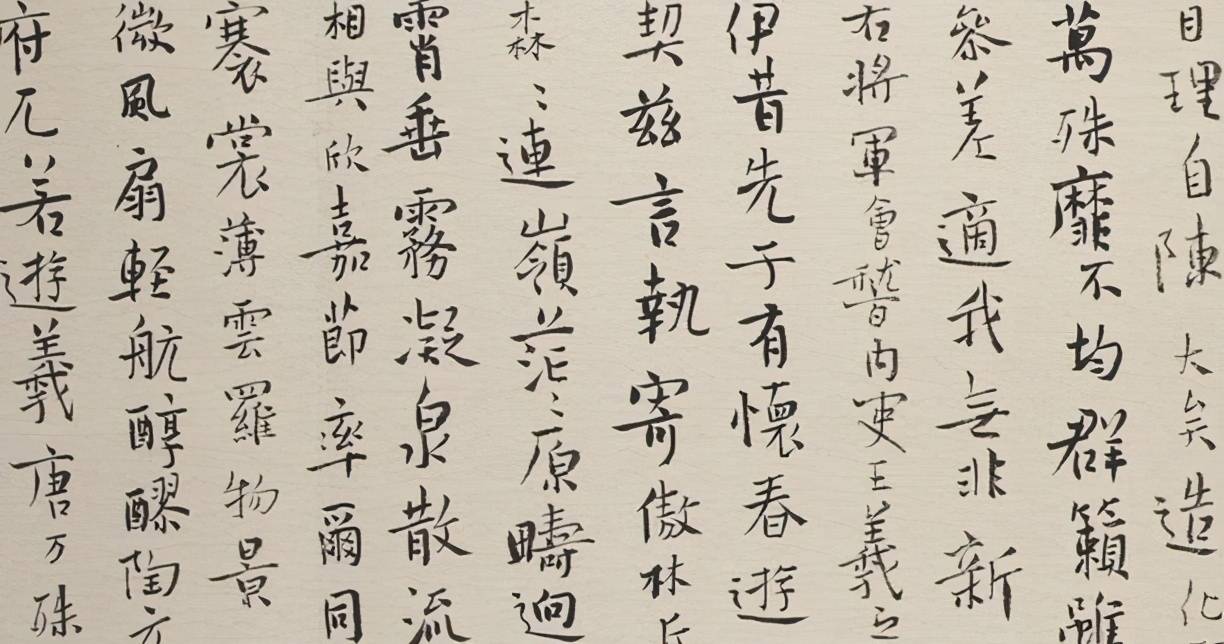 目理自陳大矣造化
萬殊靡不均群籟雖
參差適我無非新
右將軍會稽內史王羲之
伊昔先子有懷春遊
契茲言執寄傲林丘
森〻連嶺茫〻原疇迥
霄垂霧凝泉散流
相與欣嘉節率爾同
褰裳薄雲羅物景
微風扇輕航醇醪陶
府兀若遊羲唐万殊